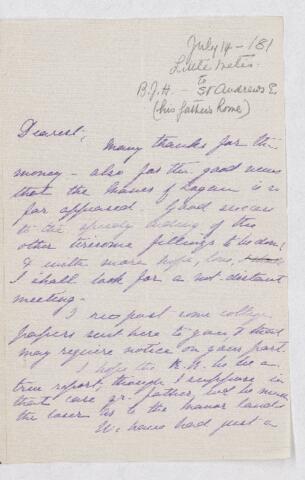 July 14 - 181
Little Metis.
to
B.J.H - St Andrews E.
(his father's home)
Dearest,
Many thanks for the
money - also for the good news
that the Manes of Logan is so
far appeased. Good success
to the speedy ending of the
other tiresome fillings to be done,
& with more hope, love,
I shall look for a not-distant
meeting.
I re-post some college
papers sent here to you & that
may require notice on your part.
I hope the R.R. is
true report, though I suppose in
that case yr. father, will be much
the loser as to the manor lands
We have had just a